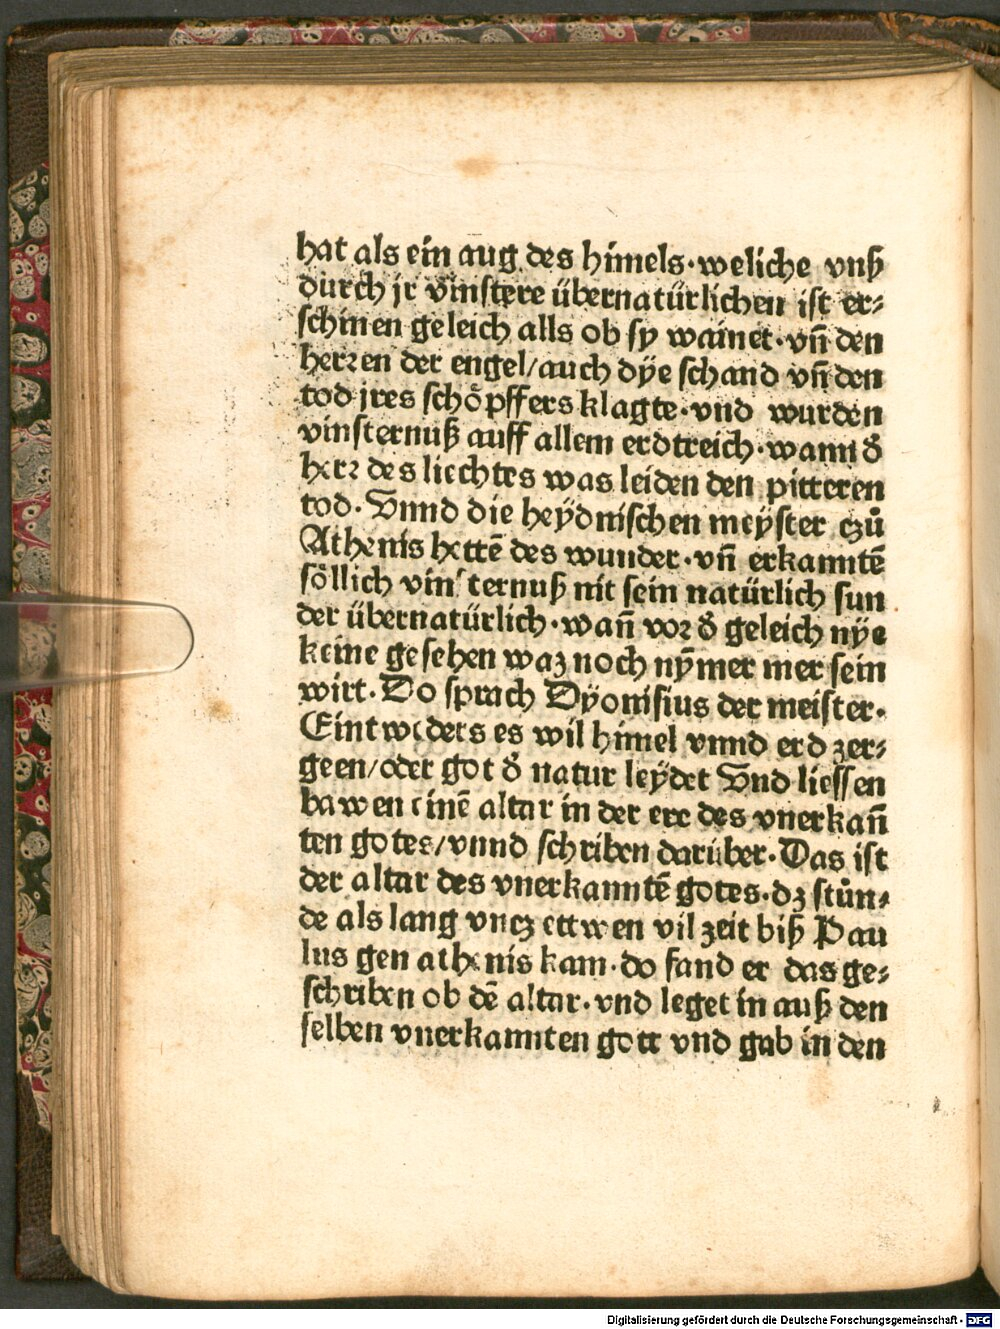 hat als ein aug des himels·weliche vnß
durch jr vinstere übernatürlichen ist er⸗
schinen geleich alls ob sy wainet·vn̄ den
herꝛen der engel/auch dÿe schand vn̄ den
tod jres schöpffers klagte·vnd wurden
vinsternuß auff allem erdtreich·wann d̉
herꝛ des liechtes was leiden den pitteren
tod·Vnnd die heÿdnischen meÿster czů
Athenis hettē des wunder·vn̄ erkanntē
söllich vinsternuß nit sein natürlich sun
der übernatürlich·wan̄ voꝛ d̉ geleich nÿe
keine gesehen waz noch nȳmer mer sein
wirt·Do sprach Dÿonisius der meister·
Eintweders es wil himel vnnd erd zer⸗
geen/oder got d̉ natur leÿdet Vnd liessen
bawen einē altar in der ere des vnerkan̄
ten gotes/vnnd schriben darüber·Das ist
der altar des vnerkanntē gotes·dz stůn⸗
de als lang vncz ettwen vil zeit biß Pau
lus gen athenis kam·do fand er das ge⸗
schriben ob dē altar·vnd leget in auß den
selben vnerkannten gott vnd gab in den
Digitalisierung gefördert durch die Deutsche Forschungsgemeinschaft - DFG